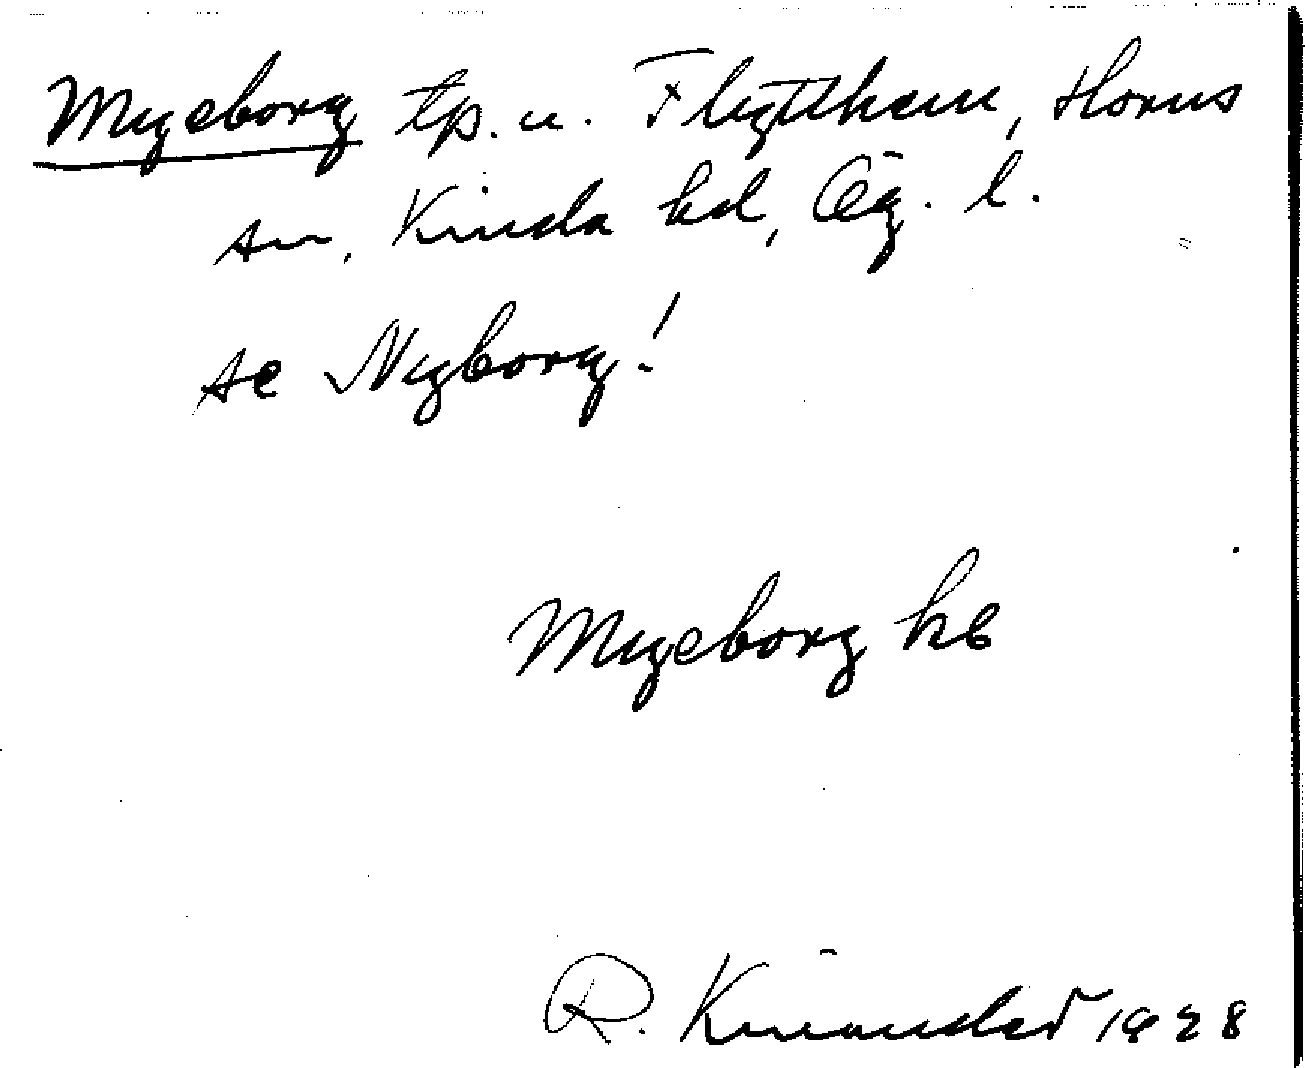 Mygeborg tp. u. Flytthem, Horns
sn, Kinda hd, Ög. l.
se Nygborg!
Mygeborg hb
R. Kinander 1928